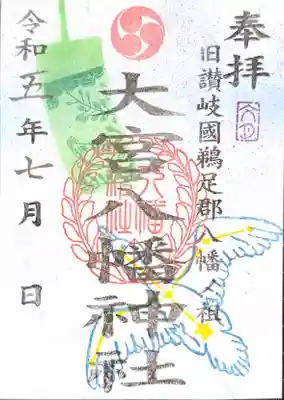 奉拝
旧讃岐國鵜足郡八幡八祖
大宮八幡神社
令和五年七月 日